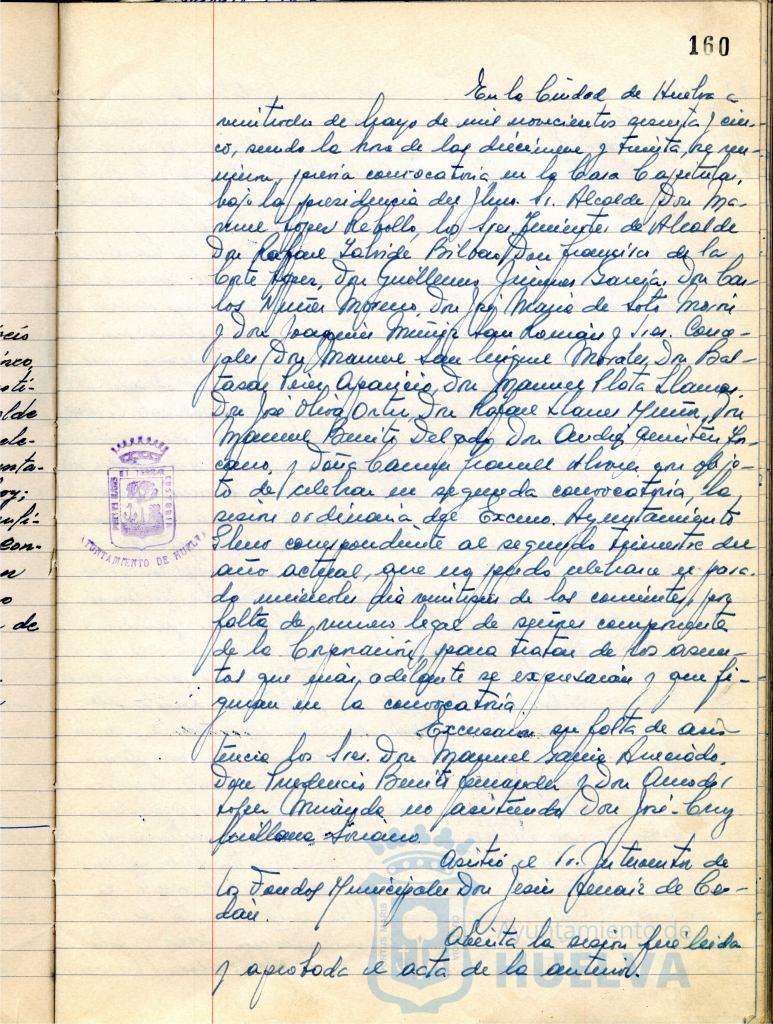 160
En la Ciudad de Huelva a
de Mayo de mil novecientos sesenta y cin-
co, siendo la hora de las diecinueve y treinta, se reu-
nieron, previa convocatoria en la Casa Capitular,
bajo la presidencia del Ilmo. Sr. Alcalde Don Ma-
nuel López Rebollo, los Sres. Tenientes de Alcalde
Don Rafael Bilbao, Don Francisco de la
Corte López, Don Guillermo Jiménez García, Don Car-
los Núñez Moreno, Don José María de Soto Morón
y Don Joaquín Muñiz San Román y Sres. Conce-
jales Don Manuel San Miguel Morales, Don Bal-
tasar Pérez Aparicio, Don Manuel Plata Llamas,
Don José Oliva Ortiz, Don Rafael Llanes Muñoz, Don
Manuel Benito Delgado, Don Andrés
y Doña Carmen con obje-
to de celebrar en segunda convocatoria, la
sesión ordinaria del Excmo. Ayuntamiento
Pleno correspondiente al segundo trimestre del
año actual, que no pudo celebrarse el pasa-
do miércoles día veintiseis de los corrientes, por
falta de número legal de señores componentes
de la Corporación, para tratar de los asun-
tos que más adelante se expresarán y que fi-
guran en la convocatoria.
Excusaron su falta de asis
tencia los Sres. Don Manuel García
Don Prudencio Benito Fernández y Don Amador
López Miranda no asistiendo Don José-Cruz
Soriano.
Asistió el Sr. Interventor de
los Fondos Municipales Don Jesús de
Abierta la sesión fué leida
y aprobada el acta de la anterior.
AYUNTAMIENTO DE HUELVA
Ayuntamiento de
HUELVA